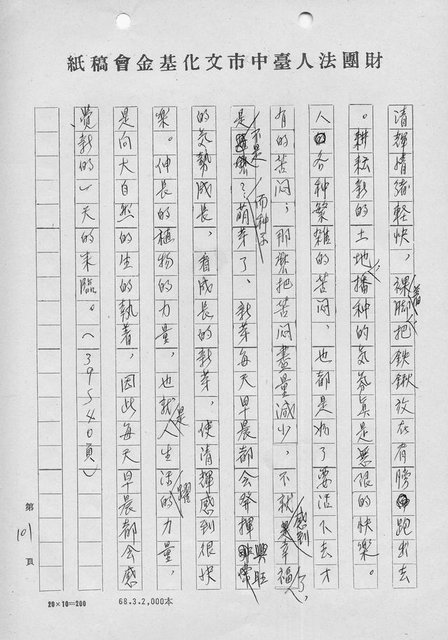 財團法人臺中市文化基金會稿紙
清輝情緒輕快，裸著脚把鉄鍬放在肩膀跑出去
。耕耘新的土地，播种的気氛真是無限的快樂。
人各种繁雑的苦悶，也都是為了要活下去才
有的苦悶；那麼把苦悶盡量减少，不就感到幸福了，
是不是？而种子萌芽了，新芽每天早晨都会發揮興旺
的気勢成長，看成長的新芽，使清輝感到很快
樂。伸長的植物的力量，也就是人生活躍的力量，
是向大自然的生的執著，因此每天早晨都会感
覺新的一天的来臨。（39540負）
第101頁
20×10=200
68.3.2,000本